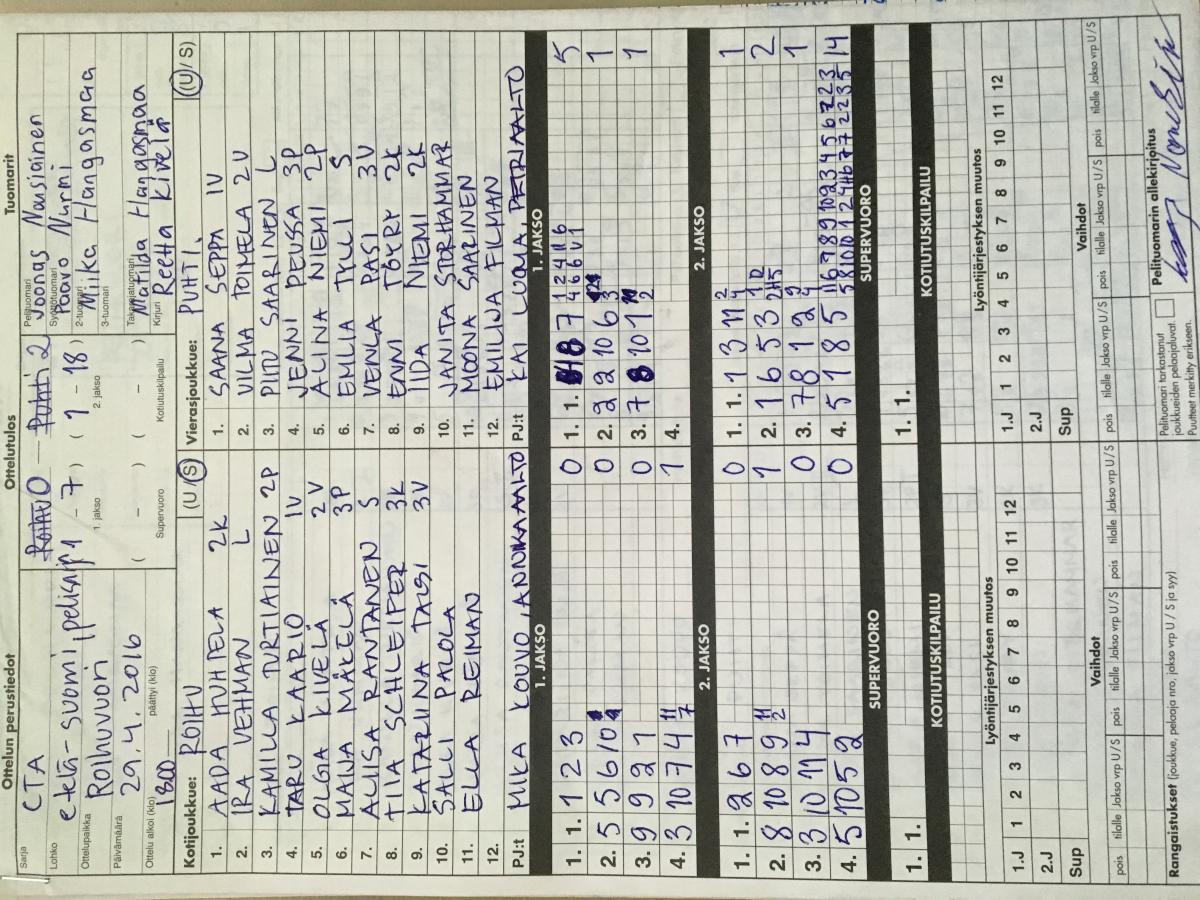 Ottelun perustiedot
Sarja CTA
Lohko etelä-suomi, pelisarja
Ottelupaikka Roihuvuori
Päivämäärä 29.4.2016
Ottelu alkoi (klo) 1800 päättyi (klo)
Ottelutulos
ROIHU Puhti 2
1 - 7 ( 1 - 18 )
1. jakso 2. jakso
( - ) ( - )
Supervuoro Kotiutuskilpailu
Tuomarit
Pelituomari Joonas Nousiainen
Syöttötuomari Paavo Nurmi
2-tuomari Miika Hangasmaa
3-tuomari
Takarajatuomari Matilda Hangasmaa
Kirjuri Reetta Kivelä
Kotijoukkue: ROIHU (U / S)
1. AADA HUHTELA 2K
2. IRA VEHMAN L
3. KAMILLA TURTIAINEN 2P
4. TARU KAARIO 1V
5. OLGA KIVELÄ 2V
6. MAIJA MÄKELÄ 3P
7. ALIISA RANTANEN S
8. TIIA SCHLEIFER 3K
9. KATARIINA TALSI 3V
10. SALLI PALOLA
11. ELLA REIMAN
12.
PJ:t MIKA KOUVO, ANNIKA AALTO
Vierasjoukkue: PUHTI (U / S)
1. SAANA SEPPÄ 1V
2. VILMA TOIMELA 2V
3. PIIU SAARINEN L
4. JENNI PEUSSA 3P
5. ALINA NIEMI 2P
6. EMILIA TYLLI S
7. VENLA PASI 3V
8. ENNI TÖYRY 2K
9. IIDA NIEMI 2K
10. JANITA STORHAMMAR
11. MOONA SAARINEN
12. EMILIJA FILMAN
PJ:t KAI LUOMA, PETRI AALTO
1. JAKSO
1. 1. 1 2 3 0
2. 5 5 6 10 0
3. 9 9 2 1 0
4. 3 10 7 4 11 7 1
2. JAKSO
1. 1. 2 6 7 0
2. 8 10 8 9 11 2 1
3. 3 10 11 4 0
4. 5 10 5 2 0
SUPERVUORO
1. 1.
KOTIUTUSKILPAILU
1. JAKSO
5
2. 2 2 10 6 1
3. 7 8 10 1 1
4.
2. JAKSO
1. 1. 1 3 11 2 4 1
2. 1 6 5 3 2
3. 7 8 1 2 9 4 1
4. 5 1 8 5 14
SUPERVUORO
1. 1.
KOTIUTUSKILPAILU
Lyöntijärjestyksen muutos
1.J 1 2 3 4 5 6 7 8 9 10 11 12
2.J
Sup
Vaihdot
pois tilalle Jakso vrp U/S pois tilalle Jakso vrp U/S pois tilalle Jakso vrp U/S
Lyöntijärjestyksen muutos
1.J 1 2 3 4 5 6 7 8 9 10 11 12
2.J
Sup
Vaihdot
pois tilalle Jakso vrp U/S pois tilalle Jakso vrp U/S pois tilalle Jakso vrp U/S
Rangaistukset (joukkue, pelaaja nro, jakso vrp U / S ja syy)
Pelituomari tarkastanut
joukkueiden pelaajaluvat.
Puutteet merkitty erikseen.
Pelituomarin allekirjoitus